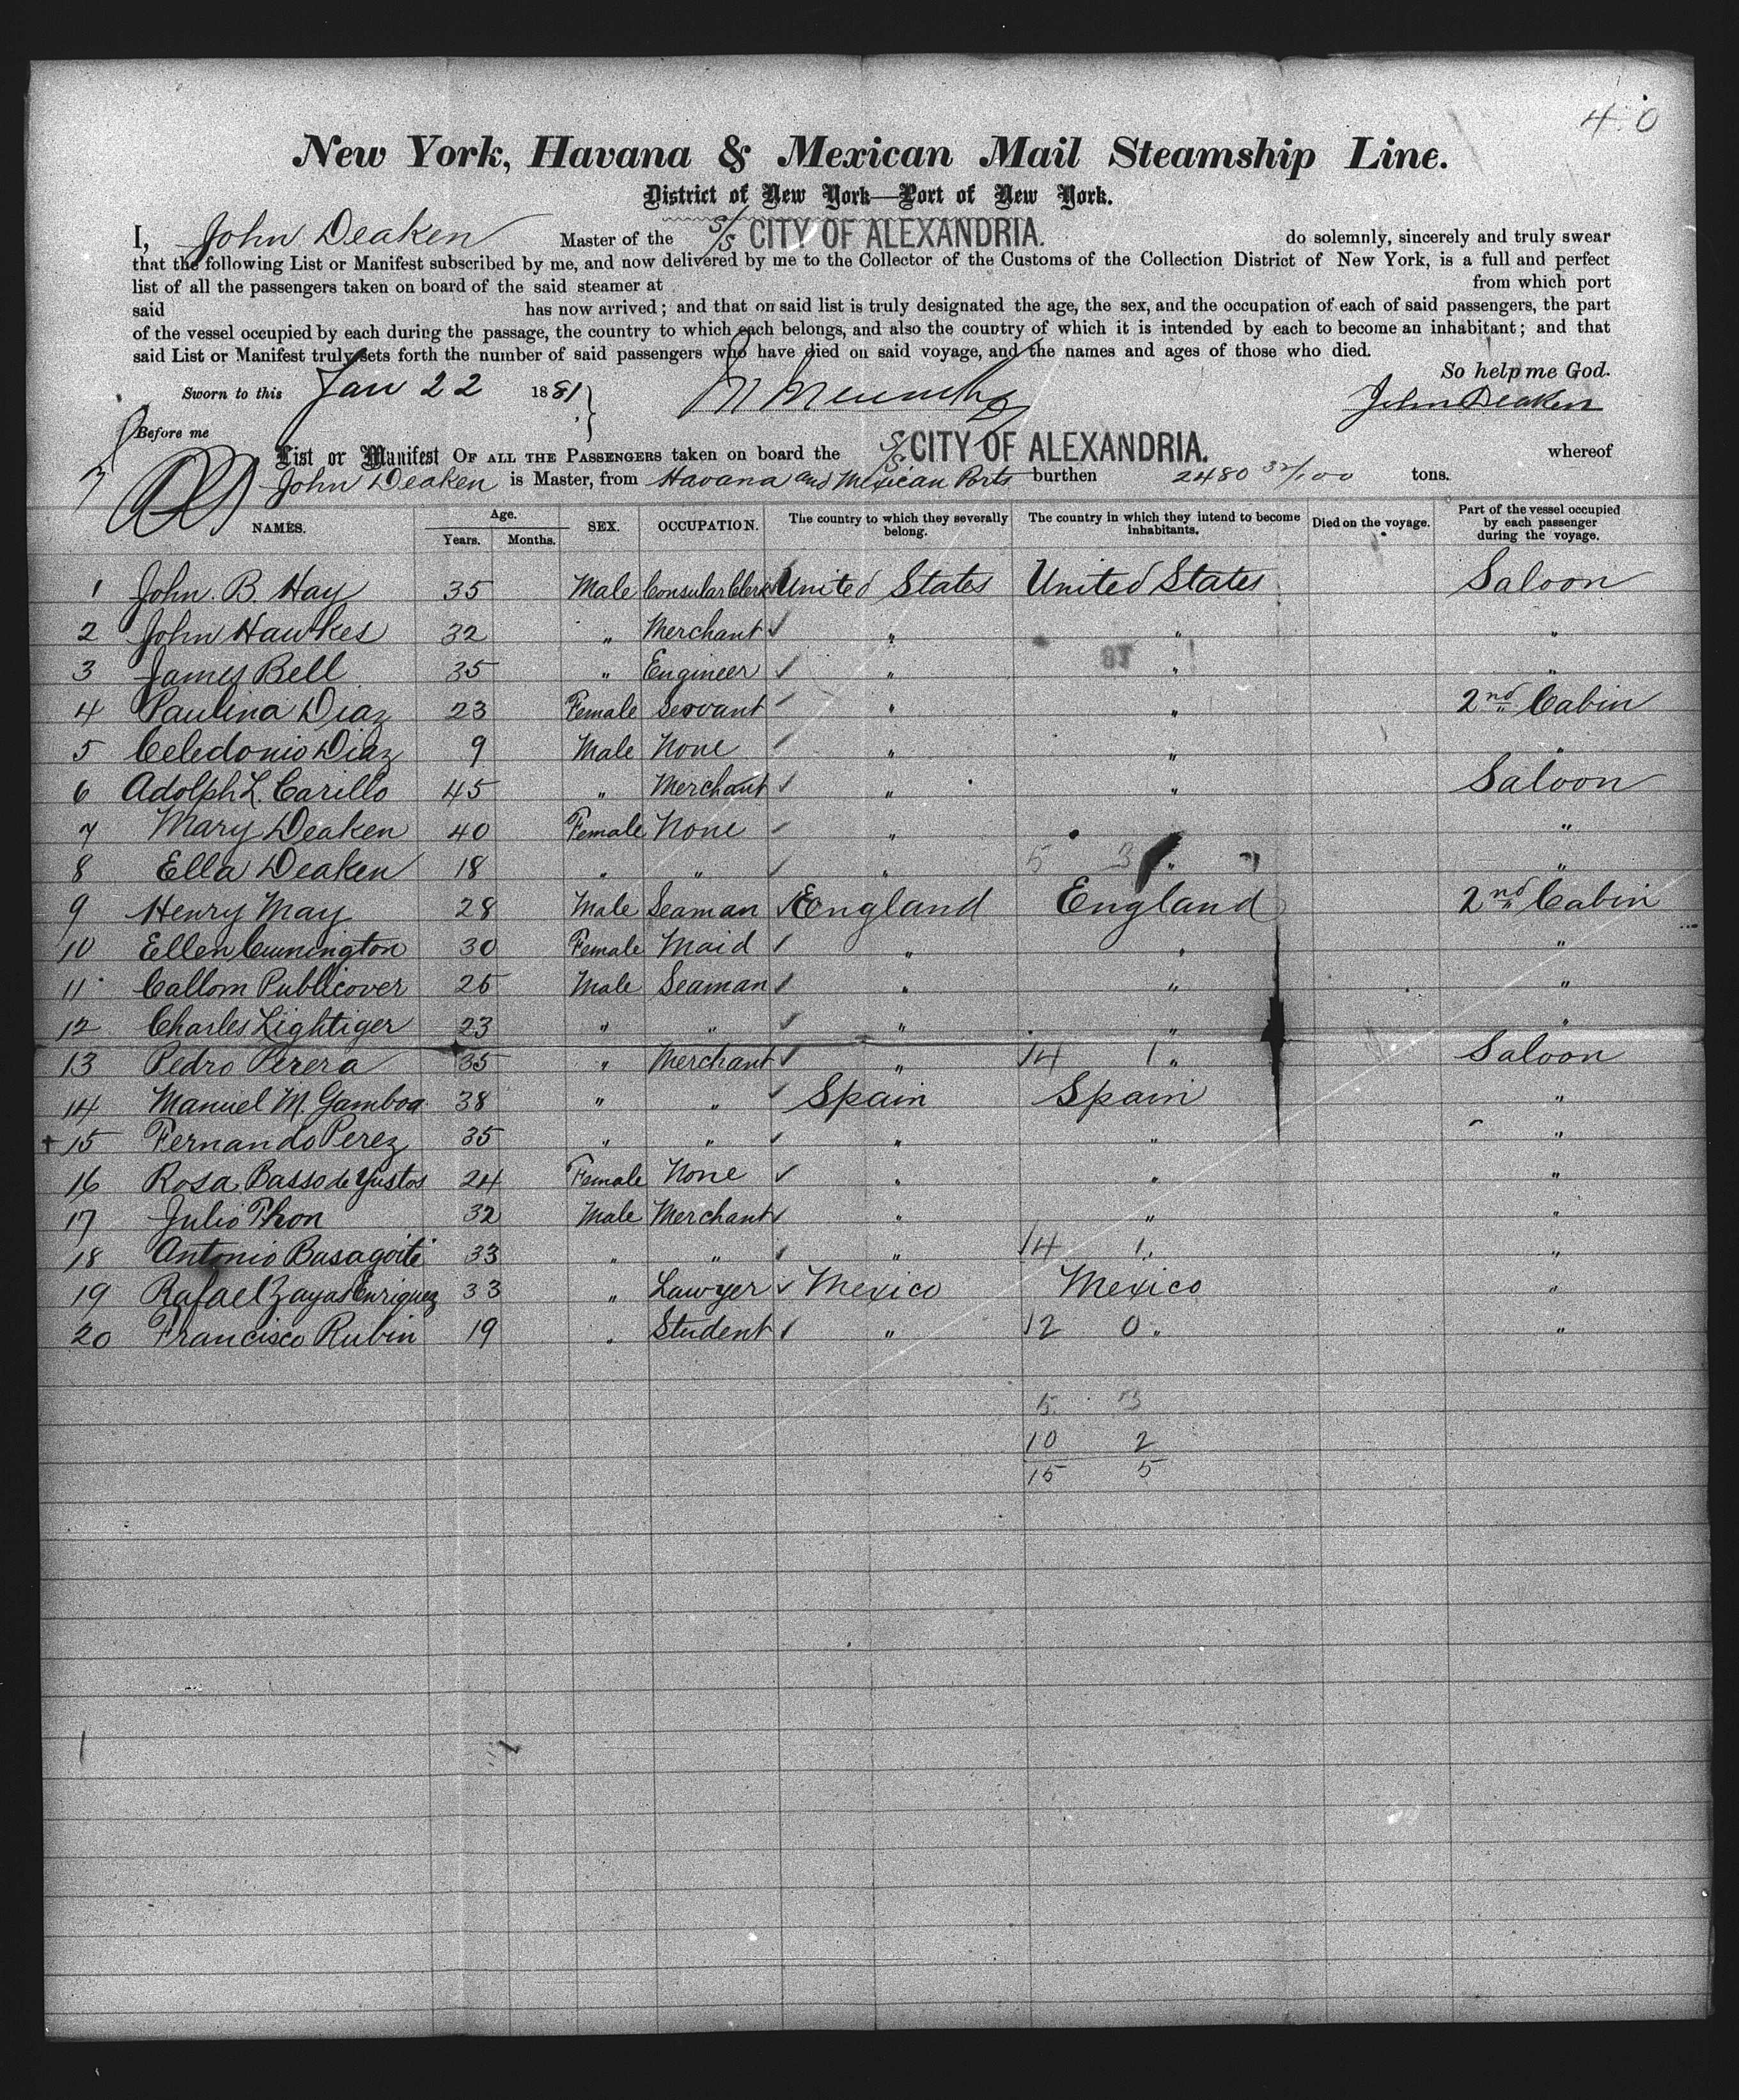 4.0
New York, Havana & Mexican Mail Steamship Line.
District of New York—Port of New York.
I, John Deaken Master of the S/S CITY OF ALEXANDRIA. do solemnly, sincerely and truly swear
that the following List or Manifest subscribed by me, and now delivered by me to the Collector of the Customs of the Collection District of New York, is a full and perfect
list of all the passengers taken on board of the said steamer at from which port
said has now arrived; and that on said list is truly designated the age, the sex, and the occupation of each of said passengers, the part
of the vessel occupied by each during the passage, the country to which each belongs, and also the country of which it is intended by each to become an inhabitant; and that
said List or Manifest truly sets forth the number of said passengers who have died on said voyage, and the names and ages of those who died.
So help me God.
Sworn to this Jan 22 1881 John Deaken
Before me
List or Manifest OF ALL THE PASSENGERS taken on board the S/S CITY OF ALEXANDRIA. whereof
John Deaken is Master, from Havana and Mexican Ports burthen 2480 32/100 tons.
NAMES. Age. Years. Months. SEX. OCCUPATION. The country to which they severally belong. The country in which they intend to become inhabitants. Died on the voyage. Part of the vessel occupied by each passenger during the voyage.
1 John. B. Hay 35 Male Consular Clerk United States United States Saloon
2 John Hawkes 32 " Merchant ✓ " " "
3 James Bell 35 " Engineer ✓ " " "
4 Paulina Diaz 23 Female Servant ✓ " " 2nd Cabin
5 Celedonio Diaz 9 Male None ✓ " " "
6 Adolph L. Carillo 45 " Merchant ✓ " " Saloon
7 Mary Deaken 40 Female None ✓ " " "
8 Ella Deaken 18 " " ✓ " 5 3 " "
9 Henry May 28 Male Seaman ✓ England England 2nd Cabin
10 Ellen Cunnington 30 Female Maid ✓ " " "
11 Callom Publicover 25 Male Seaman ✓ " " "
12 Charles Lightiger 23 " " ✓ " " "
13 Pedro Perera 35 " Merchant ✓ " 14 1 " Saloon
14 Manuel M. Gamboa 38 " " ✓ Spain Spain "
+ 15 Fernando Perez 35 " " ✓ " " "
16 Rosa Basso de Yustos 24 Female None ✓ " " "
17 Julio Thon 32 Male Merchant ✓ " " "
18 Antonio Basagoiti 33 " " ✓ " 14 1 " "
19 Rafael Zayas Enriquez 33 " Lawyer ✓ Mexico Mexico "
20 Francisco Rubin 19 " Student ✓ " 12 0 " "
5 3
10 2
15 5